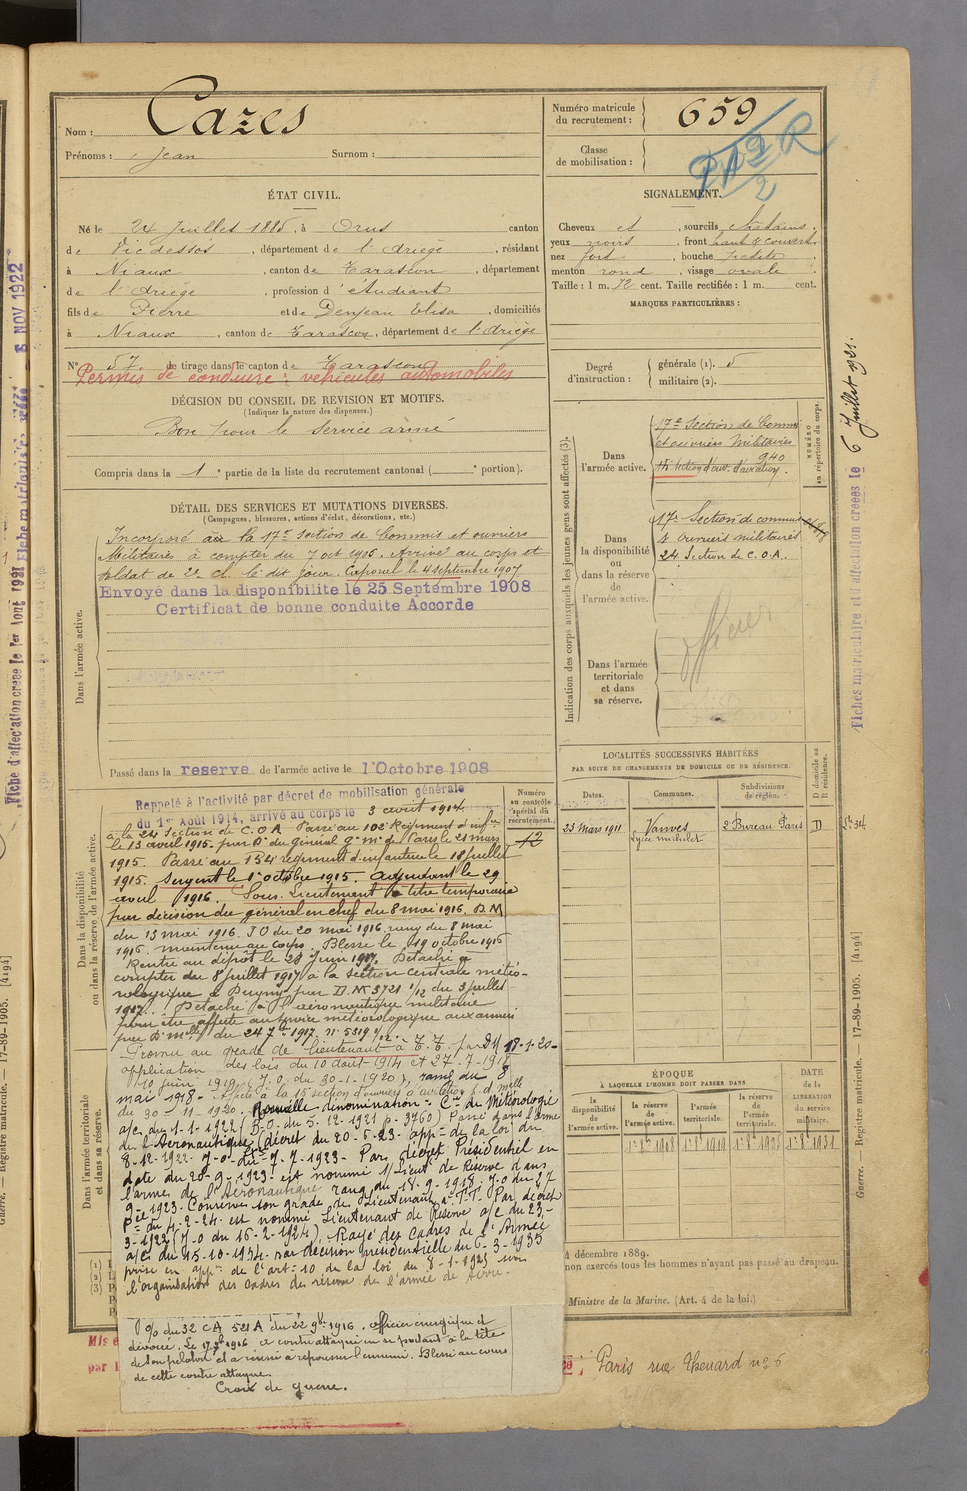 Nom : Cazes
Prénoms : Jean Surnom :
Numéro matricule du recrutement : 659
Classe de mobilisation :
ÉTAT CIVIL.
Né le 24 Juillet 1885, à Orus canton
de Vicdessos, département de l'Ariège, résidant
à Niaux, canton de Tarascon, département
de l'Ariège, profession d'étudiant
fils de Pierre et de Denjean Elisa, domiciliés
à Niaux, canton de Tarascon, département de l'Ariège
N° 57 de tirage dans le canton de Tarascon
Permis de conduire : véhicules automobiles
DÉCISION DU CONSEIL DE REVISION ET MOTIFS.
(Indiquer la nature des dispenses.)
Bon pour le service armé
Compris dans la 1 e partie de la liste du recrutement cantonal ( e portion).
SIGNALEMENT.
Cheveux et, sourcils châtains,
yeux noirs, front haut & couvert
nez fort, bouche petite,
menton rond, visage ovale.
Taille : 1 m. 72 cent. Taille rectifiée : 1 m. cent.
MARQUES PARTICULIÈRES :
Degré d'instruction :
générale (1). 5
militaire (2).
DÉTAIL DES SERVICES ET MUTATIONS DIVERSES.
(Campagnes, blessures, actions d'éclat, décorations, etc.)
Dans l'armée active.
Incorporé à la 17e Section de Commis et ouvriers
Militaires à compter du 7 oct 1906. Arrivé au corps et
soldat de 2e cl. le dit jour. Caporal le 4 septembre 1907
Envoyé dans la disponibilité le 25 Septembre 1908
Certificat de bonne conduite Accorde
Passé dans la reserve de l'armée active le 1 Octobre 1908
Indication des corps auxquels les jeunes gens sont affectés (3).
NUMÉRO au répertoire du corps.
Dans l'armée active.
17e Section de Commis
et ouvriers Militaires
940
Dans la disponibilité ou dans la réserve de l'armée active.
17e Section de commis
& Ouvriers militaires
24. Section de C.O.A.
Dans l'armée territoriale et dans sa réserve.
officier
Dans la disponibilité ou dans la réserve de l'armée active.
Numéro au contrôle spécial du recrutement.
12
Rappelé à l'activité par décret de mobilisation générale
du 1er Août 1914, arrivé au corps le 3 août 1914.
à la 24 Section de C.O.A. Passé au 102e Régiment d'infie
le 13 avril 1915. par Don du général Gr mre de Paris le 21 mars
1915. Passé au 154e régiment d'infanterie le 18 juillet
1915. Sergent le 1er octobre 1915. Adjudant le 29
avril 1916. Sous-Lieutenant à titre temporaire
par décision du général en chef du 8 mai 1916. D.M
du 13 mai 1916. JO du 20 mai 1916. rang du 8 mai
1916. maintenu au corps. Blessé le 19 octobre 1916
Rentré au dépôt le 28 Juin 1917. Détaché à
compter du 8 juillet 1917 à la Section centrale météo-
rologique à Dugny par D.M 3721 1/12 du 3 juillet
1917. Détaché à l'aéronautique militaire
pour être affecté au service météorologique aux armées
par Dn mlle du 24 7bre 1917. n° 5319
Promu au grade de Lieutenant à T.T. par DM 18-1-20-
application des lois du 10 août 1914 et 27-7-1918
10 juin 1919 (J.O. du 30-1-1920), rang du 8
mai 1918.
du 30-11-1920. Nouvelle dénomination : Cie de Météorologie
a/c du 1-1-1922 (B.O. du 5-12-1921 p. 3760) Passé dans l'arme
de l'Aéronautique (décret du 20-5-23. appon de la loi du
8-12-1922. J.O. du 7-7-1923- Par décret Présidentiel en
date du 20-9-1923- est nommé S/Lieut de Réserve dans
l'arme de l'Aéronautique rang du 18-9-1918. J.O. du 27
9-1923. Conserve son grade de Lieutenant à T.T. Par décret
Pel du 4-2-24. est nommé Lieutenant de Réserve a/c du 23-
3-1922 (J.O du 16-2-1924). Rayé des Cadres de l'Armée
a/c du 15-10-1934. par décision présidentielle du 6-3-1935
prise en appon de l'art 10 de la loi du 8-1-1925 sur
l'organisation des Cadres des réserves de l'armée de terre.
Dans l'armée territoriale et dans sa réserve.
O/ du 32 CA 521 A du 22 9bre 1916. officier énergique et
dévoué. Le 17 9bre 1916 a contre attaqué en se portant à la tête
de son peloton et a réussi à repousser l'ennemi. Blessé au cours
de cette contre attaque.
Croix de guerre.
LOCALITÉS SUCCESSIVES HABITÉES
PAR SUITE DE CHANGEMENTS DE DOMICILE OU DE RÉSIDENCE.
Dates. Communes. Subdivisions de région. D domicile ou R résidence.
23 Mars 1911 Vanves 2e Bureau Paris D
Lycée Michelet
ÉPOQUE
À LAQUELLE L'HOMME DOIT PASSER DANS
DATE de la LIBÉRATION du service militaire.
la disponibilité de l'armée active.
la réserve de l'armée active.
l'armée territoriale.
la réserve de l'armée territoriale.
4 décembre 1889.
non exercés tous les hommes n'ayant pas passé au drapeau.
Ministre de la Marine. (Art. 4 de la loi.)
Paris rue Thenard n° 6
Fiches matriculaire et d'affectation créées le 6 Juillet 1921.
Guerre. — Registre matricule. — 17-89-1905. [4194]
Fiche d'affectation créée le 1er Août 1921
NOV 1922
Guerre. — Registre matricule. — 17-89-1905. [4194]